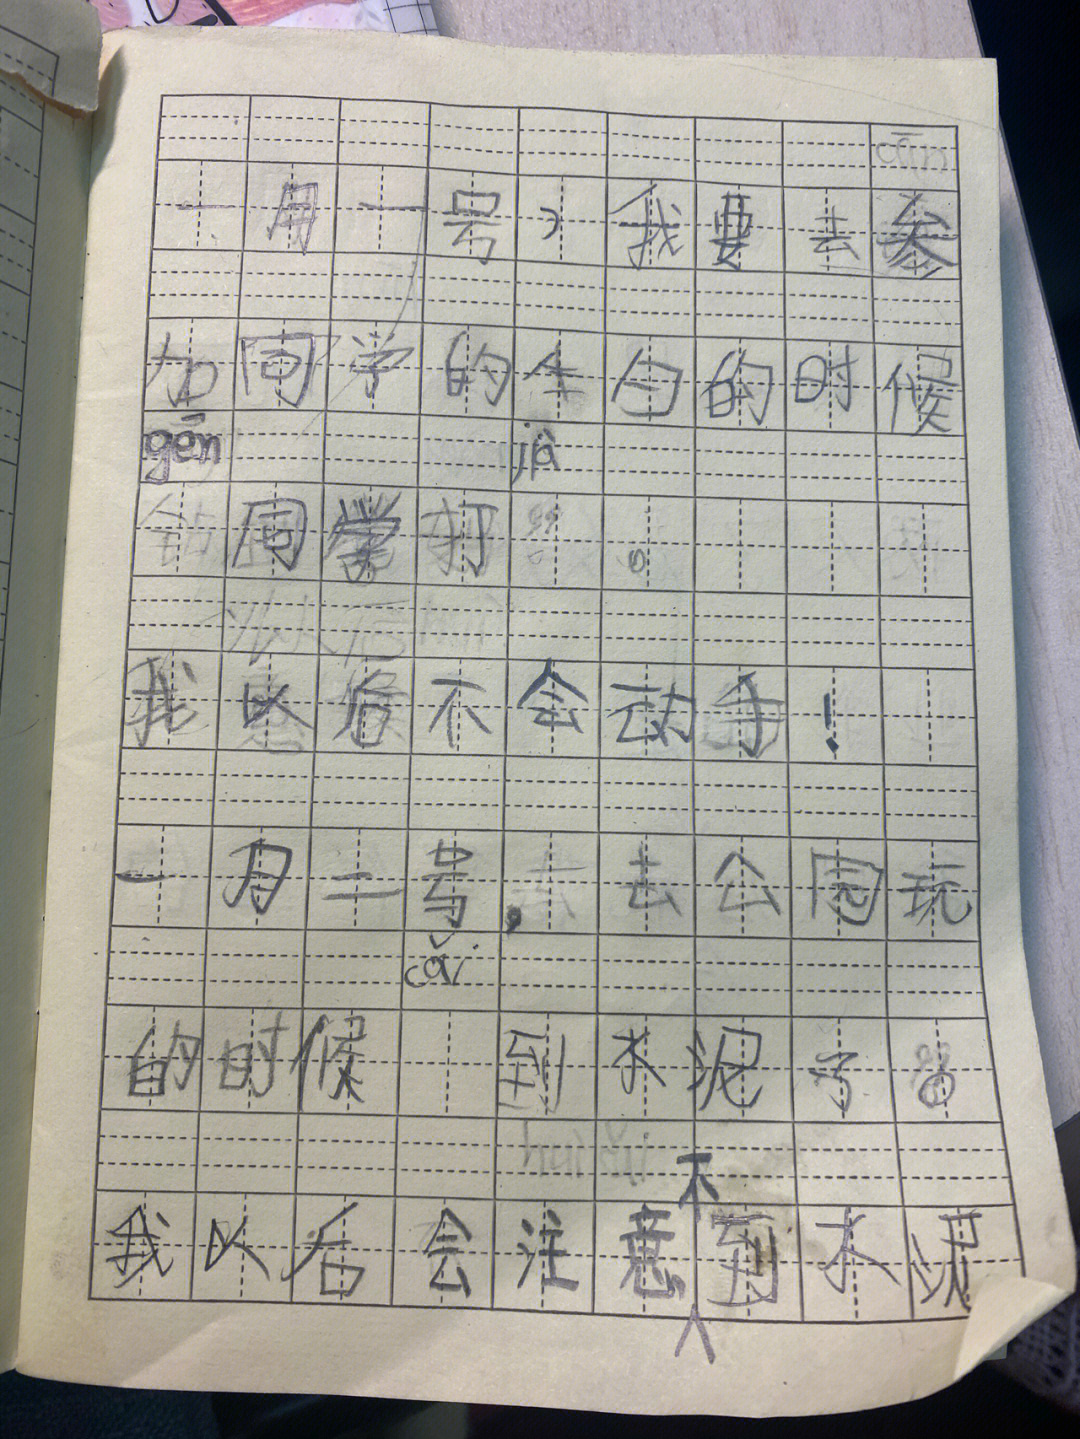 cān
一月一号，我要去参
加同学的生日的时候
gēn jià
同学打。
我以后不会动手！
一月二号，去公园玩
cǎi
的时候 到水泥了。
不
我以后会注意到水泥